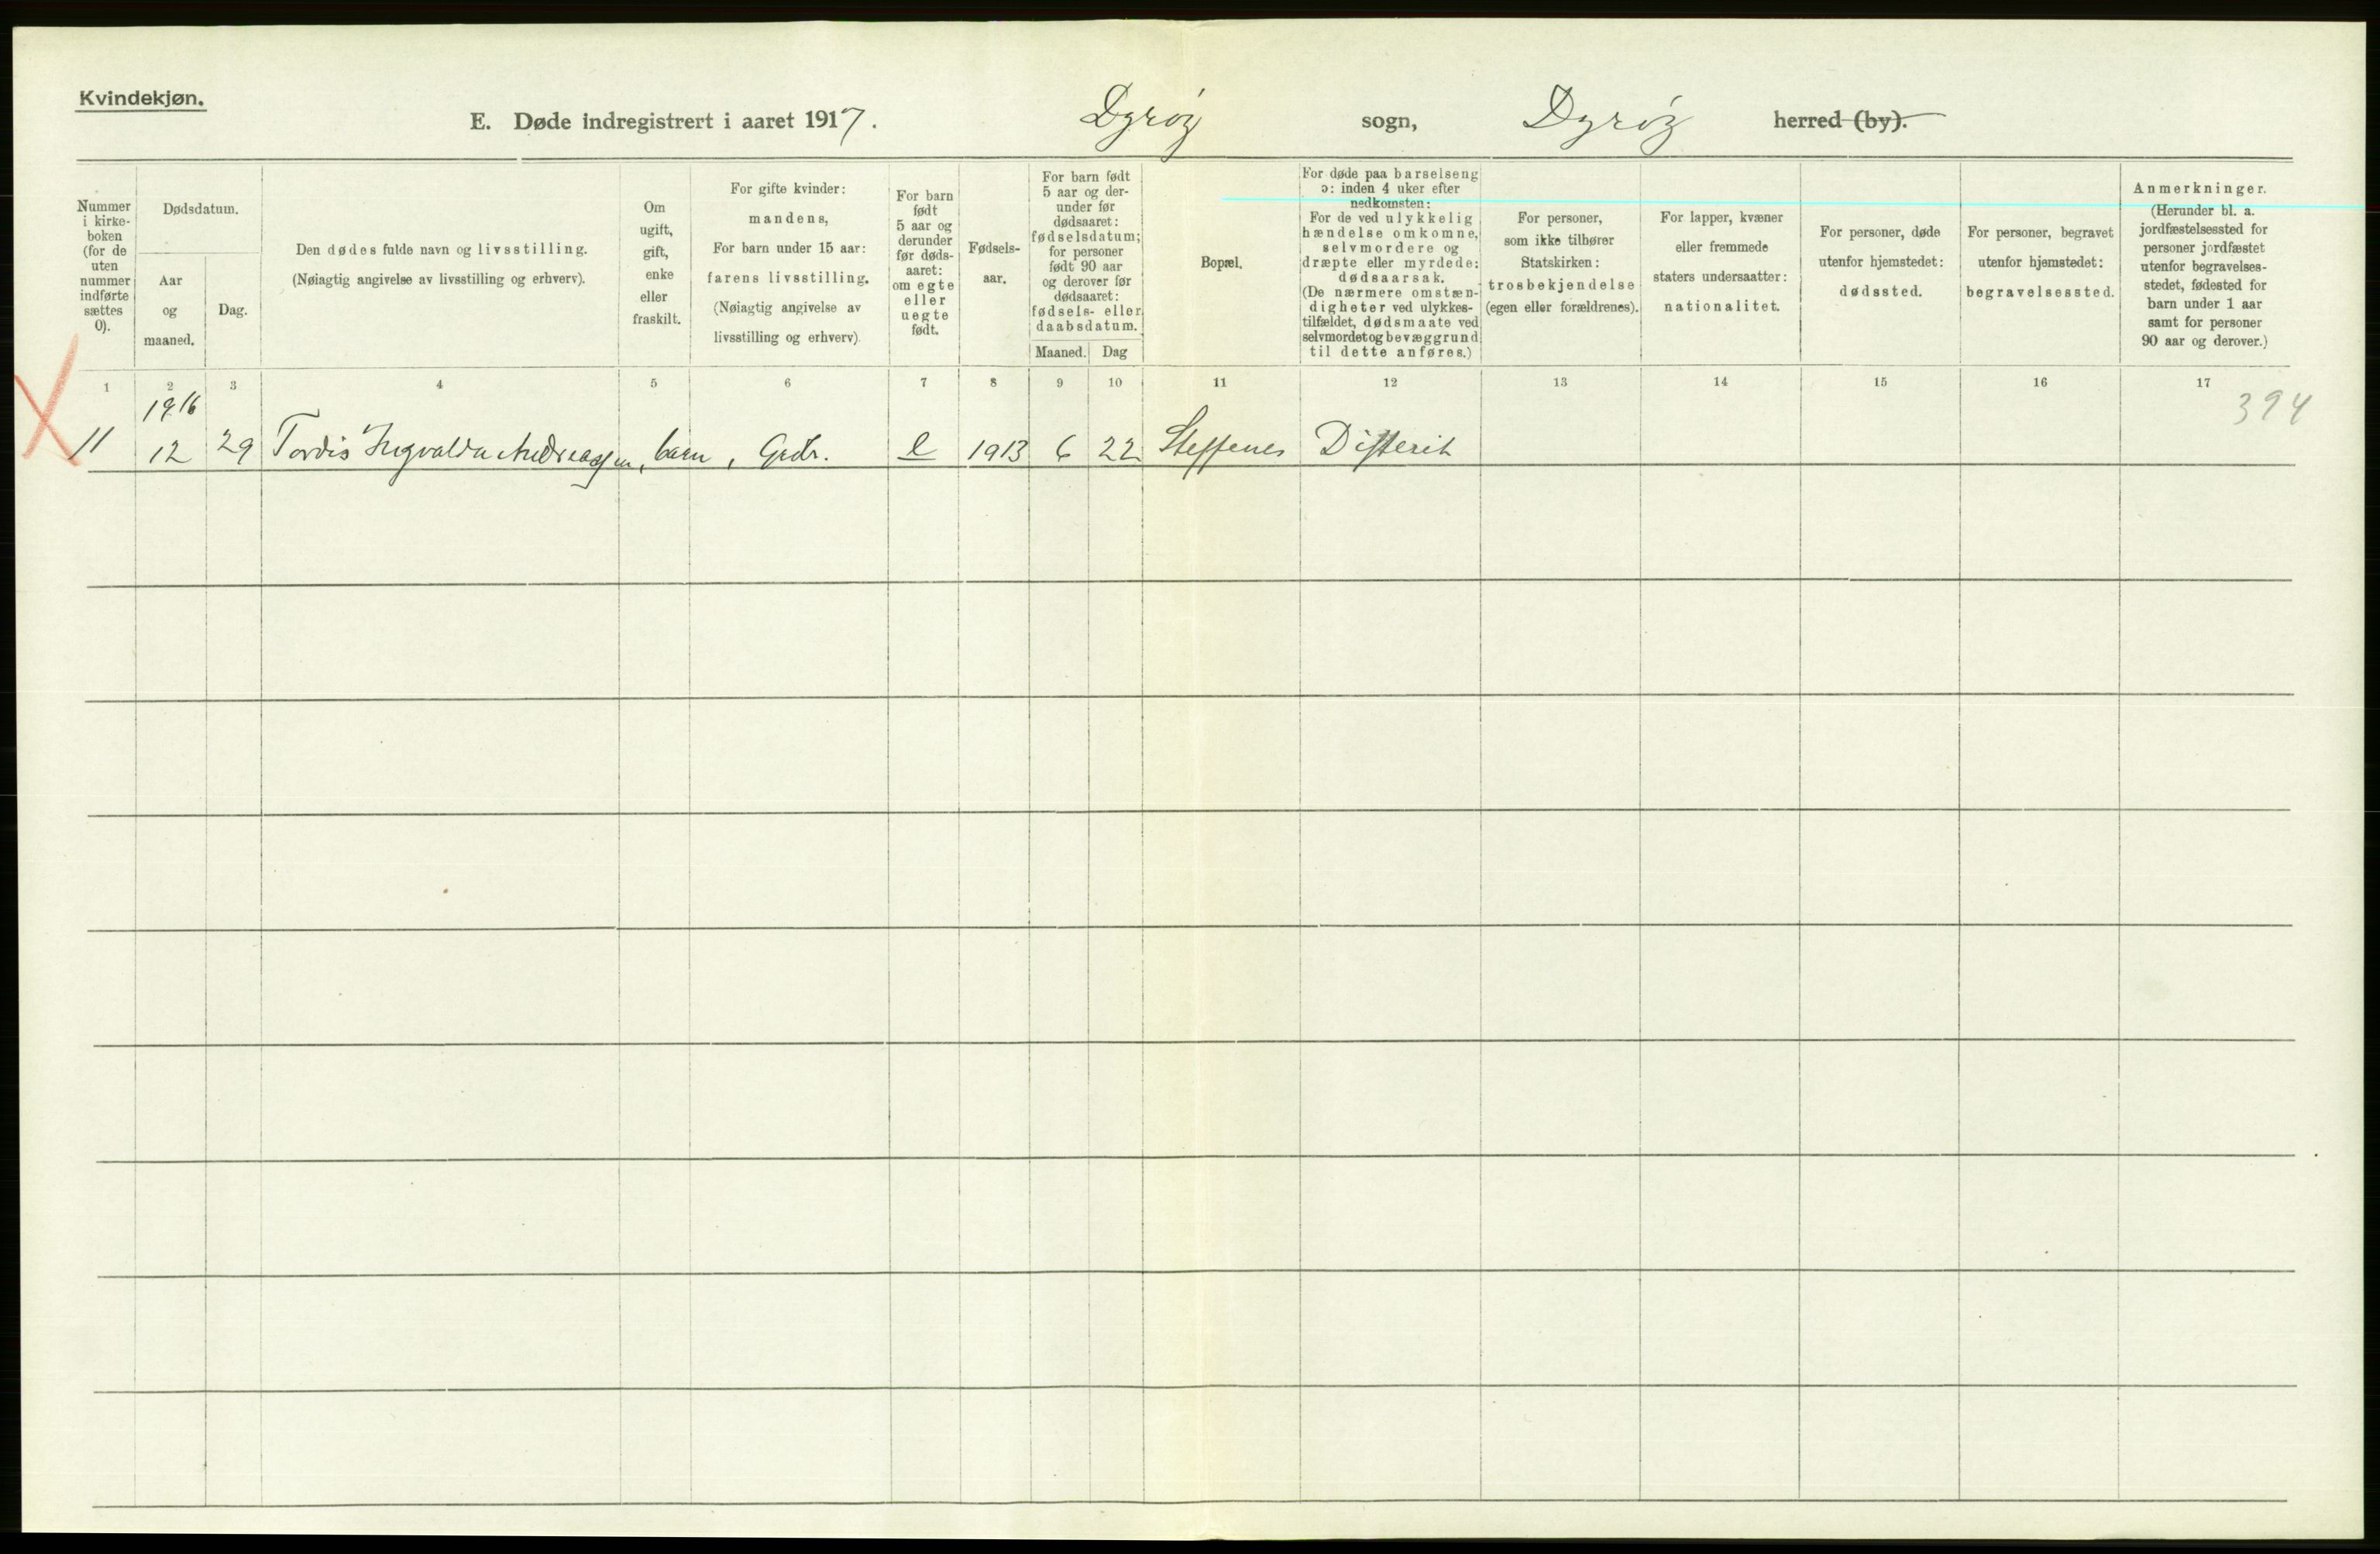 Kvindekjøn.
E. Døde indregistrert i aaret 1917. Dyrøy sogn, Dyrøy herred (by).
Nummer
i kirke-
boken
(for de
uten
nummer
indførte
sættes
0).
Dødsdatum.
Aar
og
maaned.
Dag.
Den dødes fulde navn og livsstilling.
(Nøiagtig angivelse av livsstilling og erhverv).
Om
ugift,
gift,
enke
eller
fraskilt.
For gifte kvinder:
mandens,
For barn under 15 aar:
farens livsstilling.
(Nøiagtig angivelse av
livsstilling og erhverv)
For barn
født
5 aar og
derunder
før døds-
aaret:
om egte
eller
uegte
født.
Fødsels-
aar.
For barn født
5 aar og der-
under før
dødsaaret:
fødselsdatum;
for personer
født 90 aar
og derover før
dødsaaret:
fødsels- eller
daabsdatum.
Maaned. Dag
Bopæl.
For døde paa barselseng
ɔ: inden 4 uker efter
nedkomsten:
For de ved ulykkelig
hændelse omkomne,
selvmordere og
dræpte eller myrdede:
dødsaarsak.
(De nærmere omstæn-
digheter ved ulykkes-
tilfældet, dødsmaate ved
selvmordet og bevæggrund
til dette anføres.)
For personer,
som ikke tilhører
Statskirken:
trosbekjendelse
(egen eller forældrenes).
For lapper, kvæner
eller fremmede
staters undersaatter:
nationalitet.
For personer, døde
utenfor hjemstedet:
dødssted.
For personer, begravet
utenfor hjemstedet:
begravelsessted.
Anmerkninger.
(Herunder bl. a.
jordfæstelsessted for
personer jordfæstet
utenfor begravelses-
stedet, fødested for
barn under 1 aar
samt for personer
90 aar og derover.)
1 2 3 4 5 6 7 8 9 10 11 12 13 14 15 16 17
1916 394
11 12 29 Tordis Ingvalda Andreassen, barn, Grdbr. e 1913 6 22 Steffenes Difterit